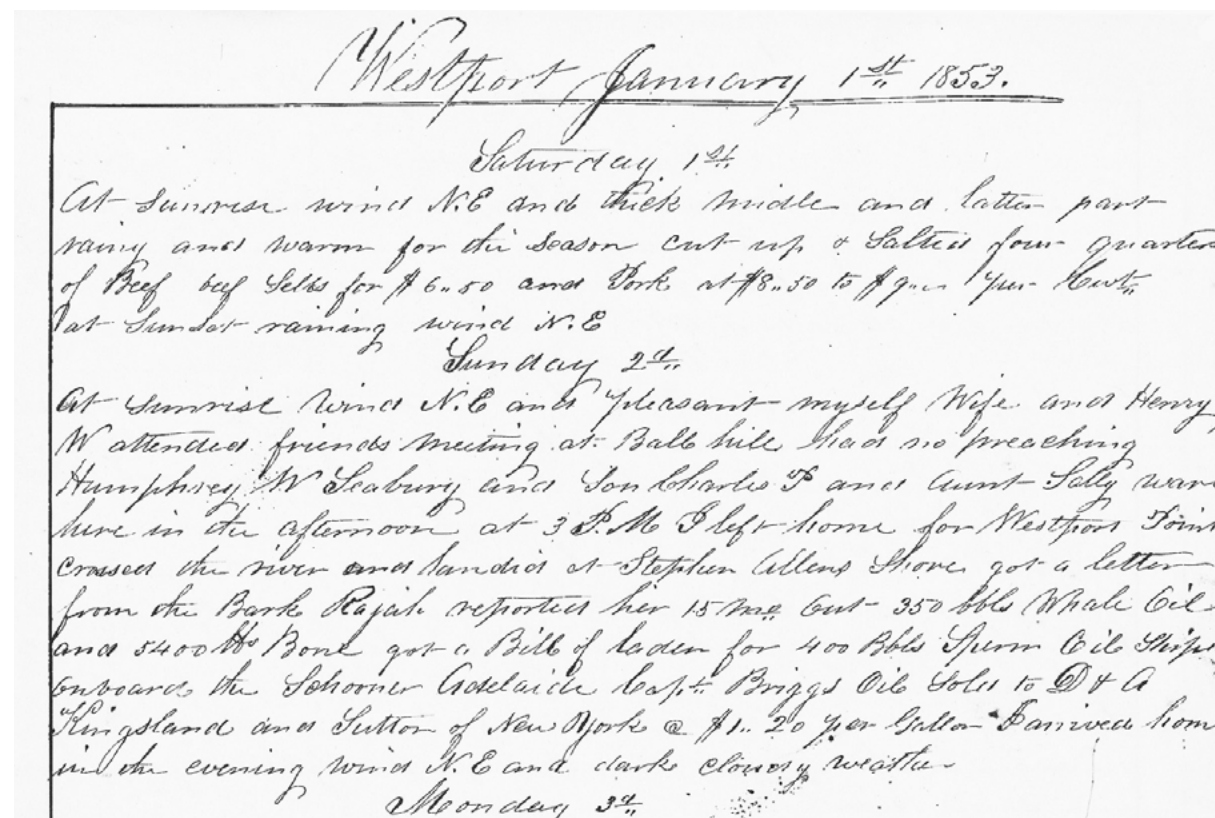 Westport January 1st 1853.
Saturday 1st
At Sunrise wind N.E and thick midle and latter part
rainy and warm for the Season cut up & Salted four quarters
of Beef beef Sells for $6..50 and Pork at $8..50 to $9.. per Cwt
at Sunset raining wind N.E
Sunday 2d
At Sunrise Wind N.E and pleasant myself Wife and Henry
W attended friends Meeting at hill had no preaching
Humphrey W Seabury and Son Charles P and Aunt Sally ware
here in the afternoon at 3 P.M I left home for Westport Point
Crossed the river and landid at Stephen Allens Shore got a letter
from the Bark Rajah reported her 15 Out 350 bbls Whale Oil
and 5400 lbs Bone got a Bill of laden for 400 Bbls Sperm Oil Ships
Onboard the Schooner Adelaide Capt Briggs Oil Sold to D & A
Kingsland and Sutton of New York @ $1..20 per Gallon I arrived hom
in the evening wind N.E and dark cloudy weather
Monday 3d